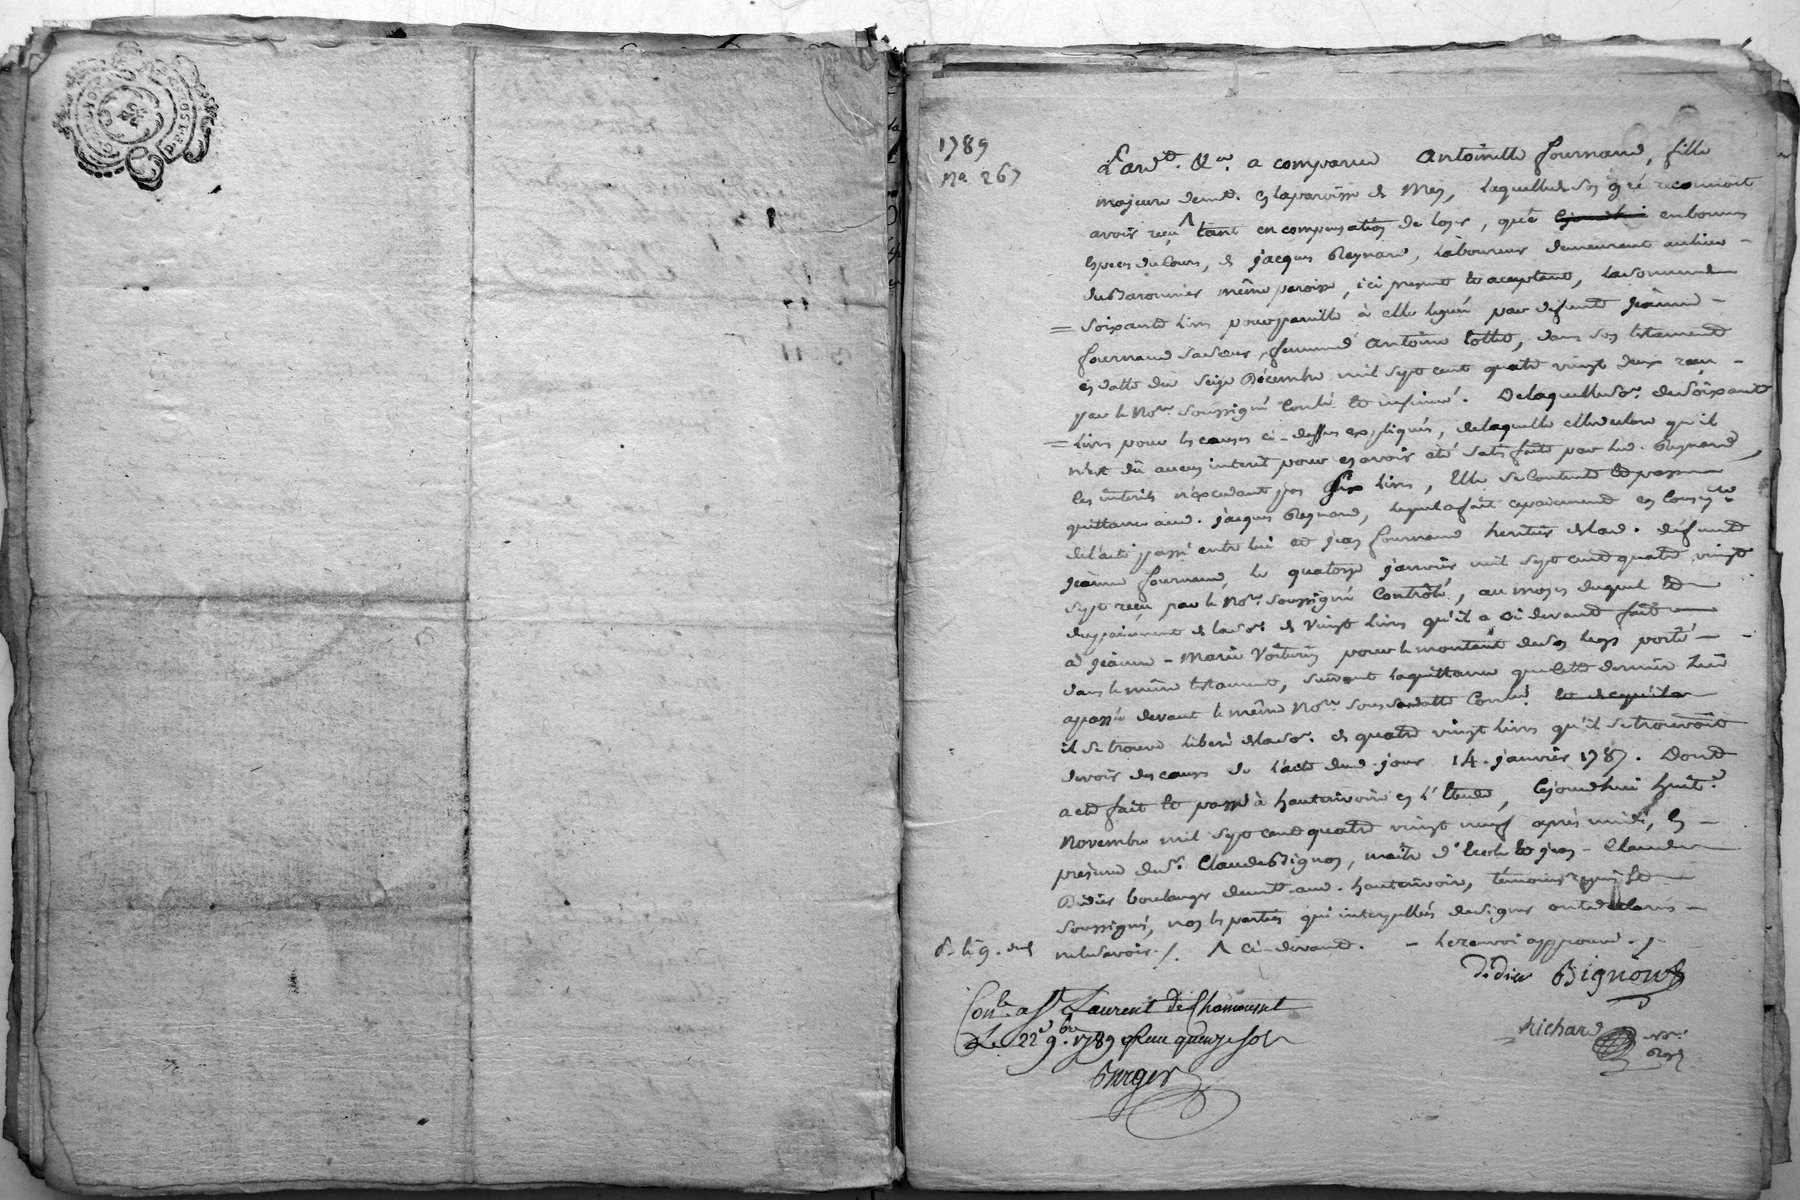 1789
Na 267
Pard.t &.a a comparue Antoinette fournand, fille
majeure demt. en la paroisse de Meys, laquelle de son gré reconnoit
avoir reçu ^ tant en compensation de loyer, que cejourdhui en bonnes
especes du cours, de jacques Reynard, laboureur demeurant au lieu
du Baronnier même paroisse, ici present et acceptant, la somme de
= soixante livres pour pareille à elle leguée par défunte jeanne
fournand sa sœur, femme d'antoine, dans son testament
en datte du seize Décembre mil sept cent quatre vingt deux reçu
par le No.re soussigné Conlé et insinué. De laquelle so.e de soixante
= livres pour les causes ci-dessus expliqués, de laquelle elle declare qu'il
n'est dû aucun interet pour en avoir été satisfaite par led. Reynard,
les interets n'excedant pas six livres, Elle se contente et passe
quittance aud. jacques Reynard, lequel a fait ce paiement en conseq.ce
de l'acte passé entre lui et jean fournand heritier de lad. défunte
jeanne fournand, le quatorze janvier mil sept cent quatre vingt
sept reçu par le No.re soussigné Controlé, au moyen duquel et
du paiement de la so.e de vingt livres qu'il a ci devant fait
à jeanne-Marie Voiturin pour le montant de son legs porté
dans le même testament, suivant la quittance que cette derniere lui
a passée devant le même No.re sous sa datte Conlé. et de ce qu'il a
il se trouve liberé de la so.e de quatre vingt livres qu'il se trouvoit
devoir des causes de l'acte dud. jour 14. janvier 1787. Dont
acte fait et passé à hauterivoire en l'Etude, cejourdhui huit.e
Novembre mil sept cent quatre vingt neuf après midi, En
presence de S.r Claude Bignon, maitre d'Ecole et jean-Claude
Didier boulanger demt. aud. hauterivoire, témoins requis et
soussignés, non les parties qui interpellées de signer ont déclarés
ne le savoir./. ^ ci-devant. - le renvoi approuvé./.
didier Bignon
Conlé a St Laurent de Chamousset
Le 22e 9.bre 1789 Reçu quinze sols
Burger
Richard
No.re
Roy.l